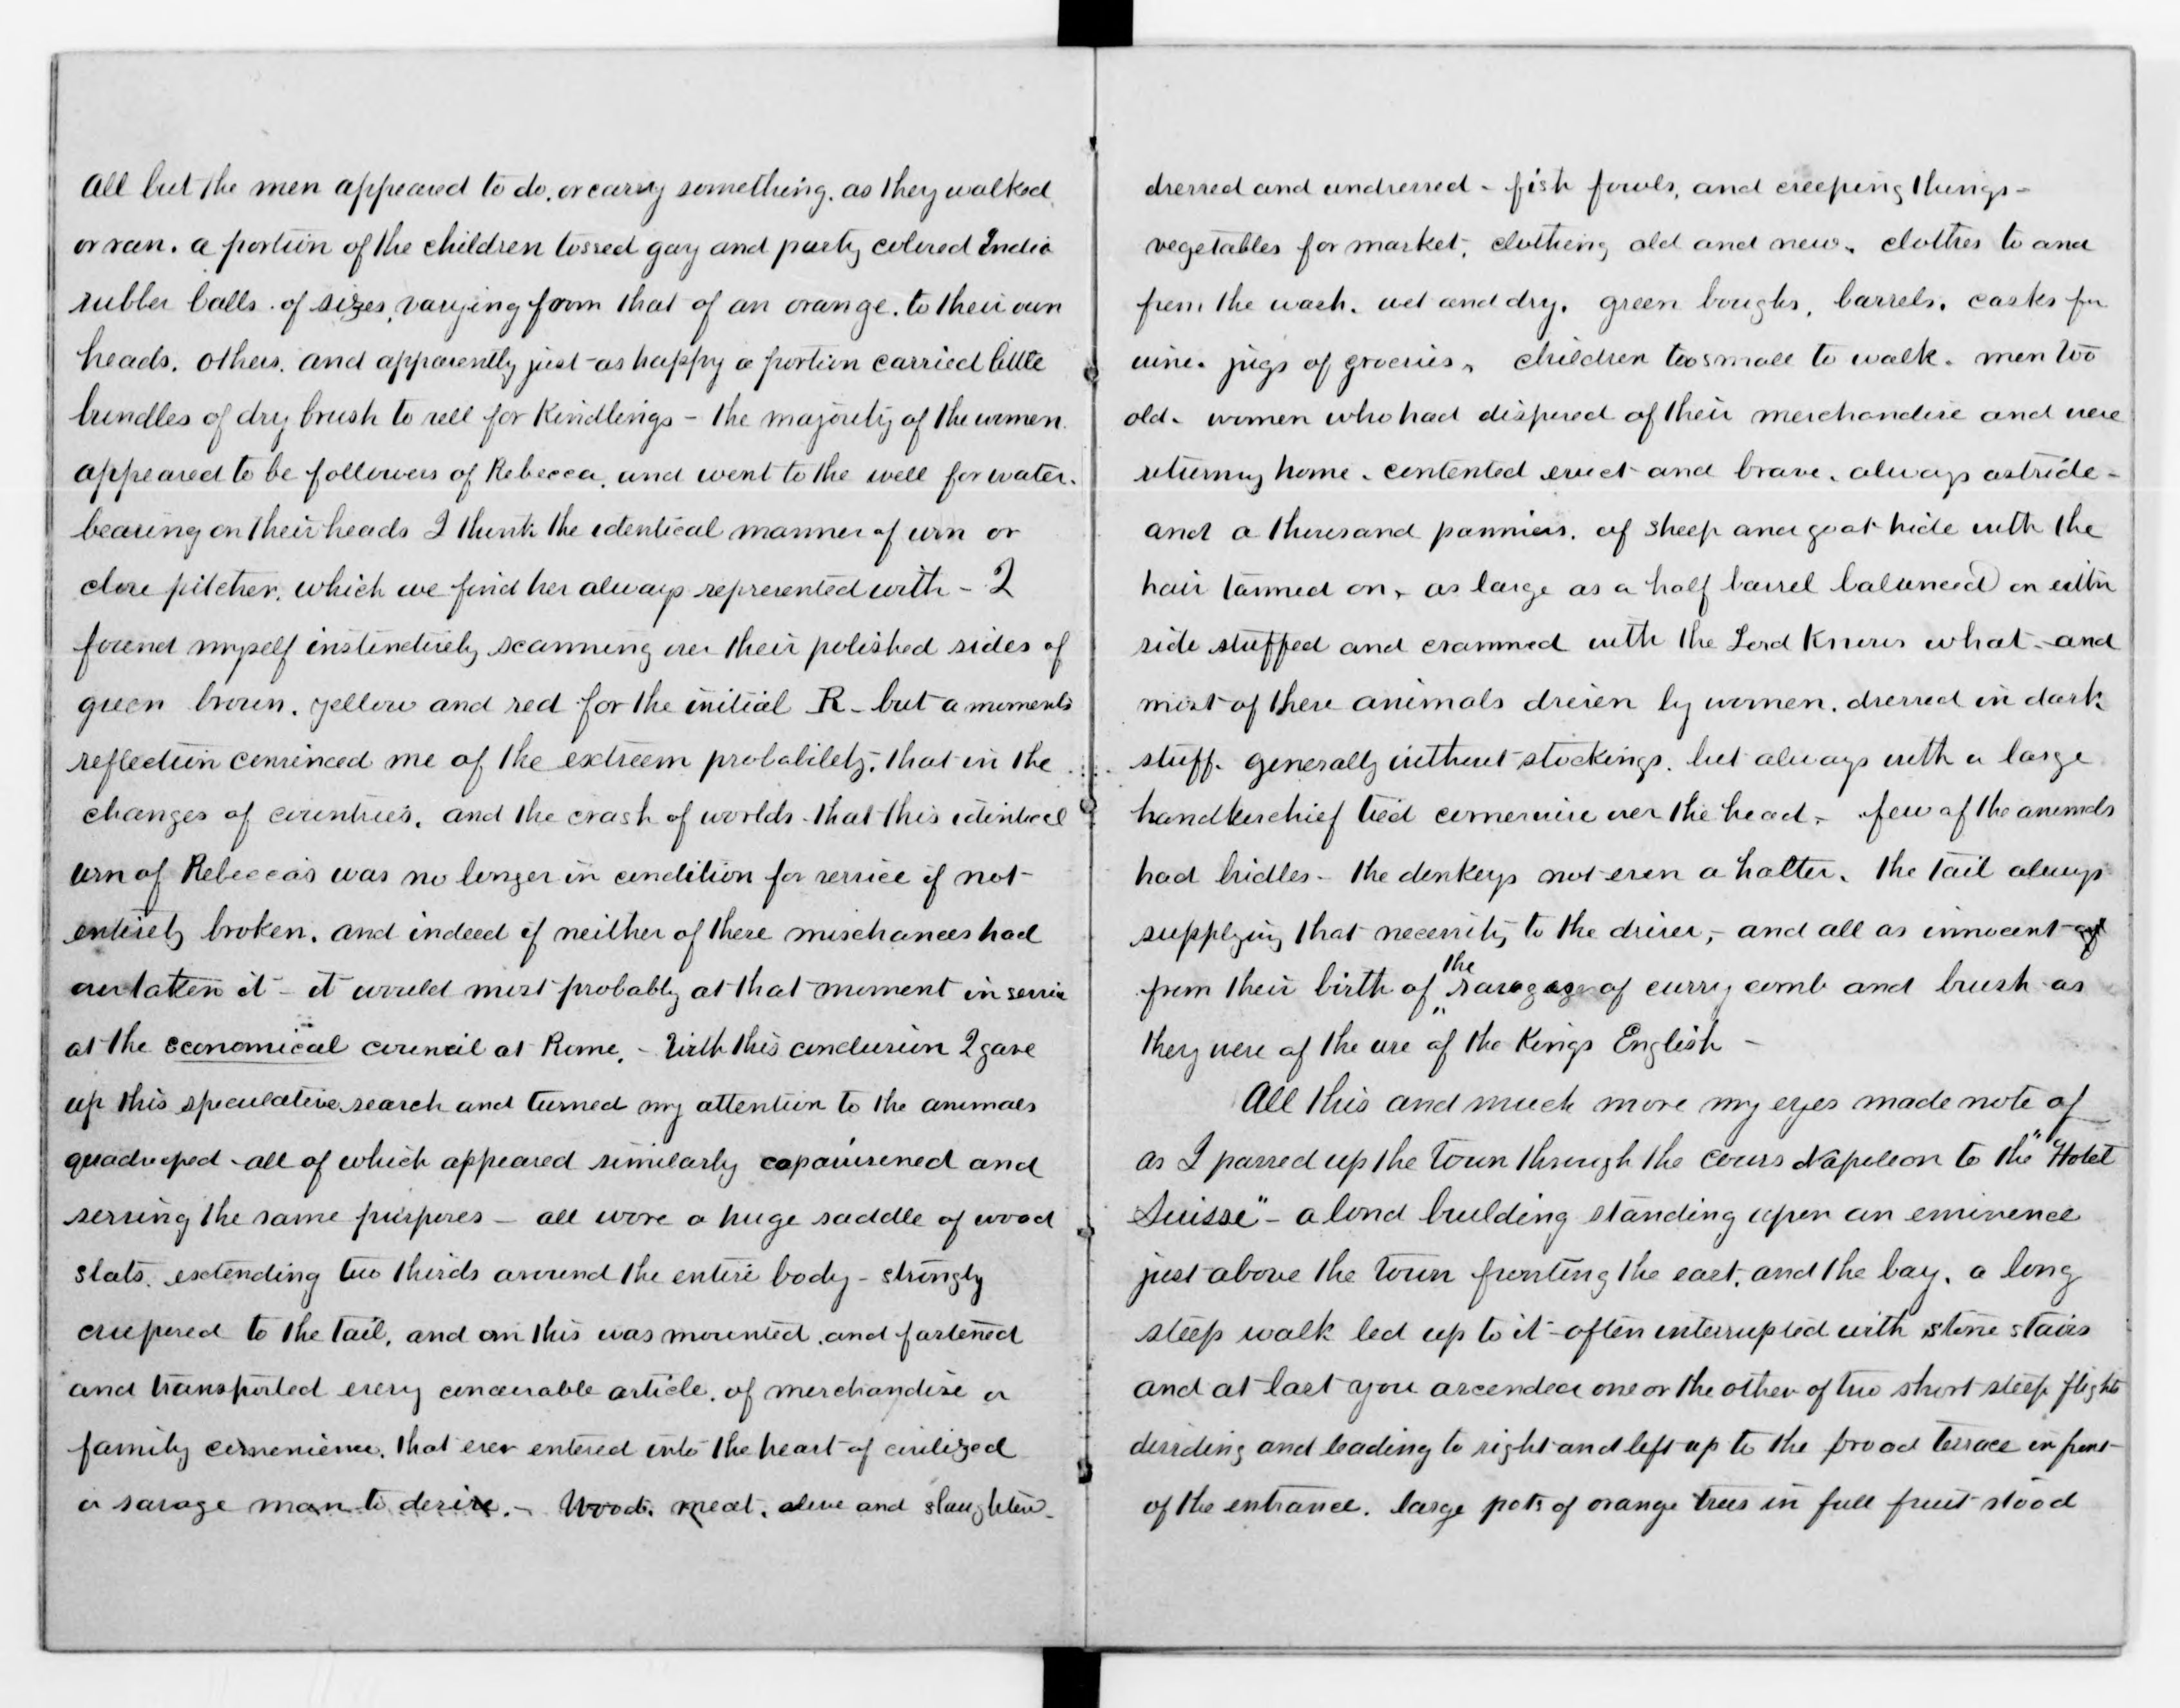 All but the men appeared to do, or carry something, as they walked
or ran. a portion of the children tossed gay and party colored India
rubber balls of sizes, varying from that of an orange, to their own
heads. others, and apparently just as happy a portion carried little
bundles of dry brush to sell for Kindlings - the majority of the women
appeared to be followers of Rebecca, and went to the well for water.
bearing on their heads I think the identical manner of urn or
close pitcher, which we find her always represented with - I
found myself instinctively scanning over their polished sides of
green brown, yellow and red for the initial R - but a moments
reflection convinced me of the extreem probability, that in the
changes of countries, and the crash of worlds - that this identical
urn of Rebecca's was no longer in condition for service if not
entirely broken, and indeed if neither of these mischances had
overtaken it - it would most probably at that moment in service
at the economical council at Rome, - With this conclusion I gave
up this speculative search and turned my attention to the animals
quadruped - all of which appeared similarly caparisened and
serving the same purposes - all wore a huge saddle of wood
slats, extending two thirds around the entire body - strongly
crupered to the tail, and on this was mounted, and fastened
and transported every conceivable article, of merchandise or
family convenience, that ever entered into the heart of civilized
or savage man to desire. - Wood, meat, alive and slaughtered
dressed and undressed - fish fowls, and creeping things -
vegetables for market, clothing old and new, clothes to and
from the wash, wet and dry, green boughs, barrels, casks for
wine, jugs of groceries, children too small to walk, men too
old, women who had disposed of their merchandise and were
returning home, contented erect and brave, always astride -
and a thousand panniers, of sheep and goat hide with the
hair tanned on, as large as a half barrel balanced on either
side stuffed and crammed with the Lord Knows what - and
most of these animals driven by women, dressed in dark
stuff, generally without stockings, but always with a large
handkerchief tied cornerwise over the head, - few of the animals
had bridles - the donkeys not even a halter, the tail always
supplying that necessity to the driver, - and all as innocent
from their birth of the savagage of curry comb and brush as
they were of the use of the Kings English -
All this and much more my eyes made note of
as I passed up the Town through the cours Napoleon to the "Hotel
Suisse" - a lond building standing upon an eminence
just above the Town fronting the east, and the bay, a long
steep walk led up to it - often interrupted with stone stairs
and at last you ascended one or the other of two short steep flights
dividing and leading to right and left up to the broad terrace in front
of the entrance. large pots of orange trees in full fruit stood